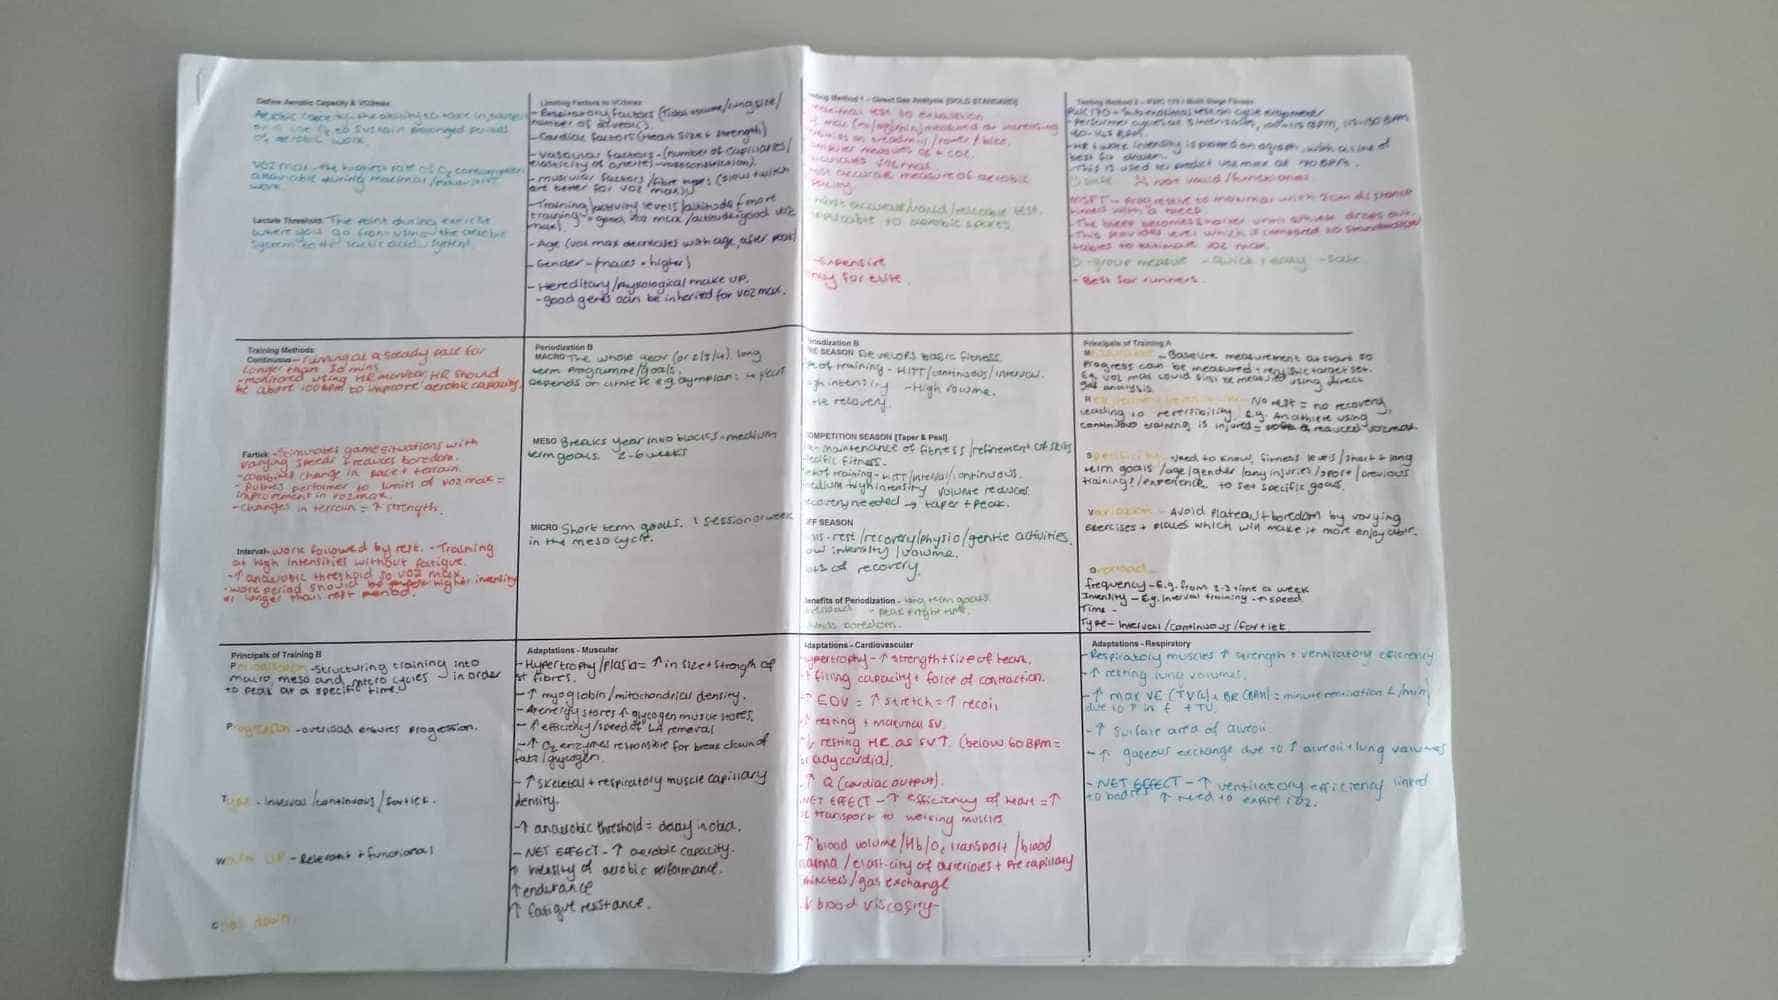 Define Aerobic Capacity & VO2max
Aerobic capacity - the ability to take in, transport
or a use O2 to sustain prolonged periods
of aerobic work.
VO2 max - the highest rate of O2 consumption
attainable during maximal/
work.
Lactate Threshold: The point during exercise
where you go from using the aerobic
system to the lactic acid system.
Limiting Factors to VO2max
- Respiratory factors (Tidal volume/lung size/
number of alveoli)
- Cardiac factors (Heart size + strength)
- vascular factors - (number of capillaries/
elasticity of arteries - vasoconstriction).
- muscular factors / fibre types (slow twitch
are better for VO2 max)
- Training/activity levels/altitude (more
training = good VO2 max / altitude = good VO2
max)
- Age (VO2 max decreases with age, after peak)
- Gender - (males = higher)
- Hereditary/Physiological make up.
- good genes can be inherited for VO2 max.
Testing Method 1 - Direct Gas Analysis [GOLD STANDARD]
maximal test to exhaustion
measured at increasing
on treadmill/rower/bike.
measures O2 + CO2.
most accurate measure of aerobic
capacity.
most accurate/valid/reliable test.
applicable to aerobic sports
- Expensive
only for elite.
Testing Method 2 - PWC 170 / Multi Stage Fitness
PWC170 - submaximal test on cycle ergometer
- Performer cycles at 3 intensities, 100-115 BPM, 115-130 BPM
130-145 BPM.
- HR + work intensity is plotted on a graph, with a line of
best fit drawn.
- This is used to predict VO2 max at 170 BPM.
safe not valid/functional.
MSFT - Progressive to maximal with 20m distance
timed with a bleep.
- The bleep becomes shorter until athlete drops out.
- This provides level which is compared to standardised
tables to estimate VO2 max.
- group measure - Quick + easy - safe
- Best for runners.
Training Methods
Continuous - running at a steady pace for
longer than 30 mins
- monitored using HR monitor, HR should
be above 100 BPM to improve aerobic capacity.
Fartlek - Stimulates game situations with
varying speeds + reduces boredom.
- combines change in pace + terrain.
- Pushes performer to limits of VO2 max =
improvement in VO2 max.
- Changes in terrain = ↑ strength.
Interval - work followed by rest. - Training
at high intensities without fatigue.
- ↑ anaerobic threshold so VO2 max.
- work period should be higher intensity
or longer than rest period.
Periodization B
MACRO The whole year (or 2/3/4) long
term programme/goals.
Depends on athlete e.g olympian: 4 years
MESO Breaks year into blocks - medium
term goals. 2-6 weeks
MICRO Short term goals. 1 session or week
in the meso cycle.
Periodization B
PRE SEASON Develops basic fitness.
of training - HITT/continuous/interval.
high intensity - High volume.
recovery.
COMPETITION SEASON [Taper & Peal]
- maintenance of fitness/refinement of skills
specific fitness.
of training - HITT/interval/continuous.
medium-high intensity volume reduces.
recovery needed → taper + peak.
OFF SEASON
- rest/recovery/physio/gentle activities.
low intensity / volume.
lots of recovery.
Benefits of Periodization - long term goals.
overload - peak + right time.
avoids boredom.
Principals of Training A
Measurable - Baseline measurement at start so
progress can be measured + realistic target set.
E.g VO2 max could be measured using direct
gas analysis.
No rest = no recovery,
leading to reversibility, E.g. An athlete using
continuous training is injured = reduced VO2 max.
Specificity - need to know, fitness levels / short + long
term goals / age / gender / any injuries / sport / previous
trainings / experience to set specific goals.
Variation - Avoid plateau + boredom by varying
exercises + places which will make it more enjoyable.
Overload
frequency - E.g. from 2-3 time a week
Intensity - Eg. interval training - ↑ speed
Time -
Type - interval/continuous/fartlek.
Principals of Training B
Periodisation - Structuring training into
macro, meso and micro cycles in order
to peak at a specific time.
Progression - overload ensures progression.
Type - interval/continuous/fartlek.
Warm up - Relevant + functional
Cool down.
Adaptations - Muscular
- Hypertrophy/Plasia = ↑ in size + strength of
st fibres.
- ↑ myoglobin/mitochondrial density.
- ↑ energy stores ↑ glycogen muscle stores.
- ↑ efficiency/speed of LA removal
- ↑ O2 enzymes responsible for break down of
fats/glycogen.
- ↑ skeletal + respiratory muscle capillary
density.
- ↑ anaerobic threshold = delay in obla.
- NET EFFECT - ↑ aerobic capacity.
↑ intensity of aerobic performance.
↑ endurance
↑ fatigue resistance.
Adaptations - Cardiovascular
Hypertrophy - ↑ strength + size of heart.
↑ filling capacity + force of contraction.
↑ EDV = ↑ stretch = ↑ recoil
↑ resting + maximal SV.
↓ resting HR as SV ↑. (below 60 BPM =
bradycardia).
↑ Q (cardiac output).
NET EFFECT - ↑ efficiency of heart = ↑
O2 transport to working muscles
↑ blood volume/Hb/O2 transport / blood
plasma / elasticity of arteries + Pre capillary
sphincters / gas exchange
↓ blood viscosity
Adaptations - Respiratory
- Respiratory muscles ↑ strength + ventilatory efficiency
- ↑ resting lung volumes.
- ↑ max VE (TV(L) x BR (BPM) = minute ventilation L/min)
due to ↑ in f + TV.
- ↑ surface area of alveoli
- ↑ gaseous exchange due to ↑ alveoli + lung volumes
- NET EFFECT - ↑ ventilatory efficiency linked
to bodies ↑ need to expire CO2.